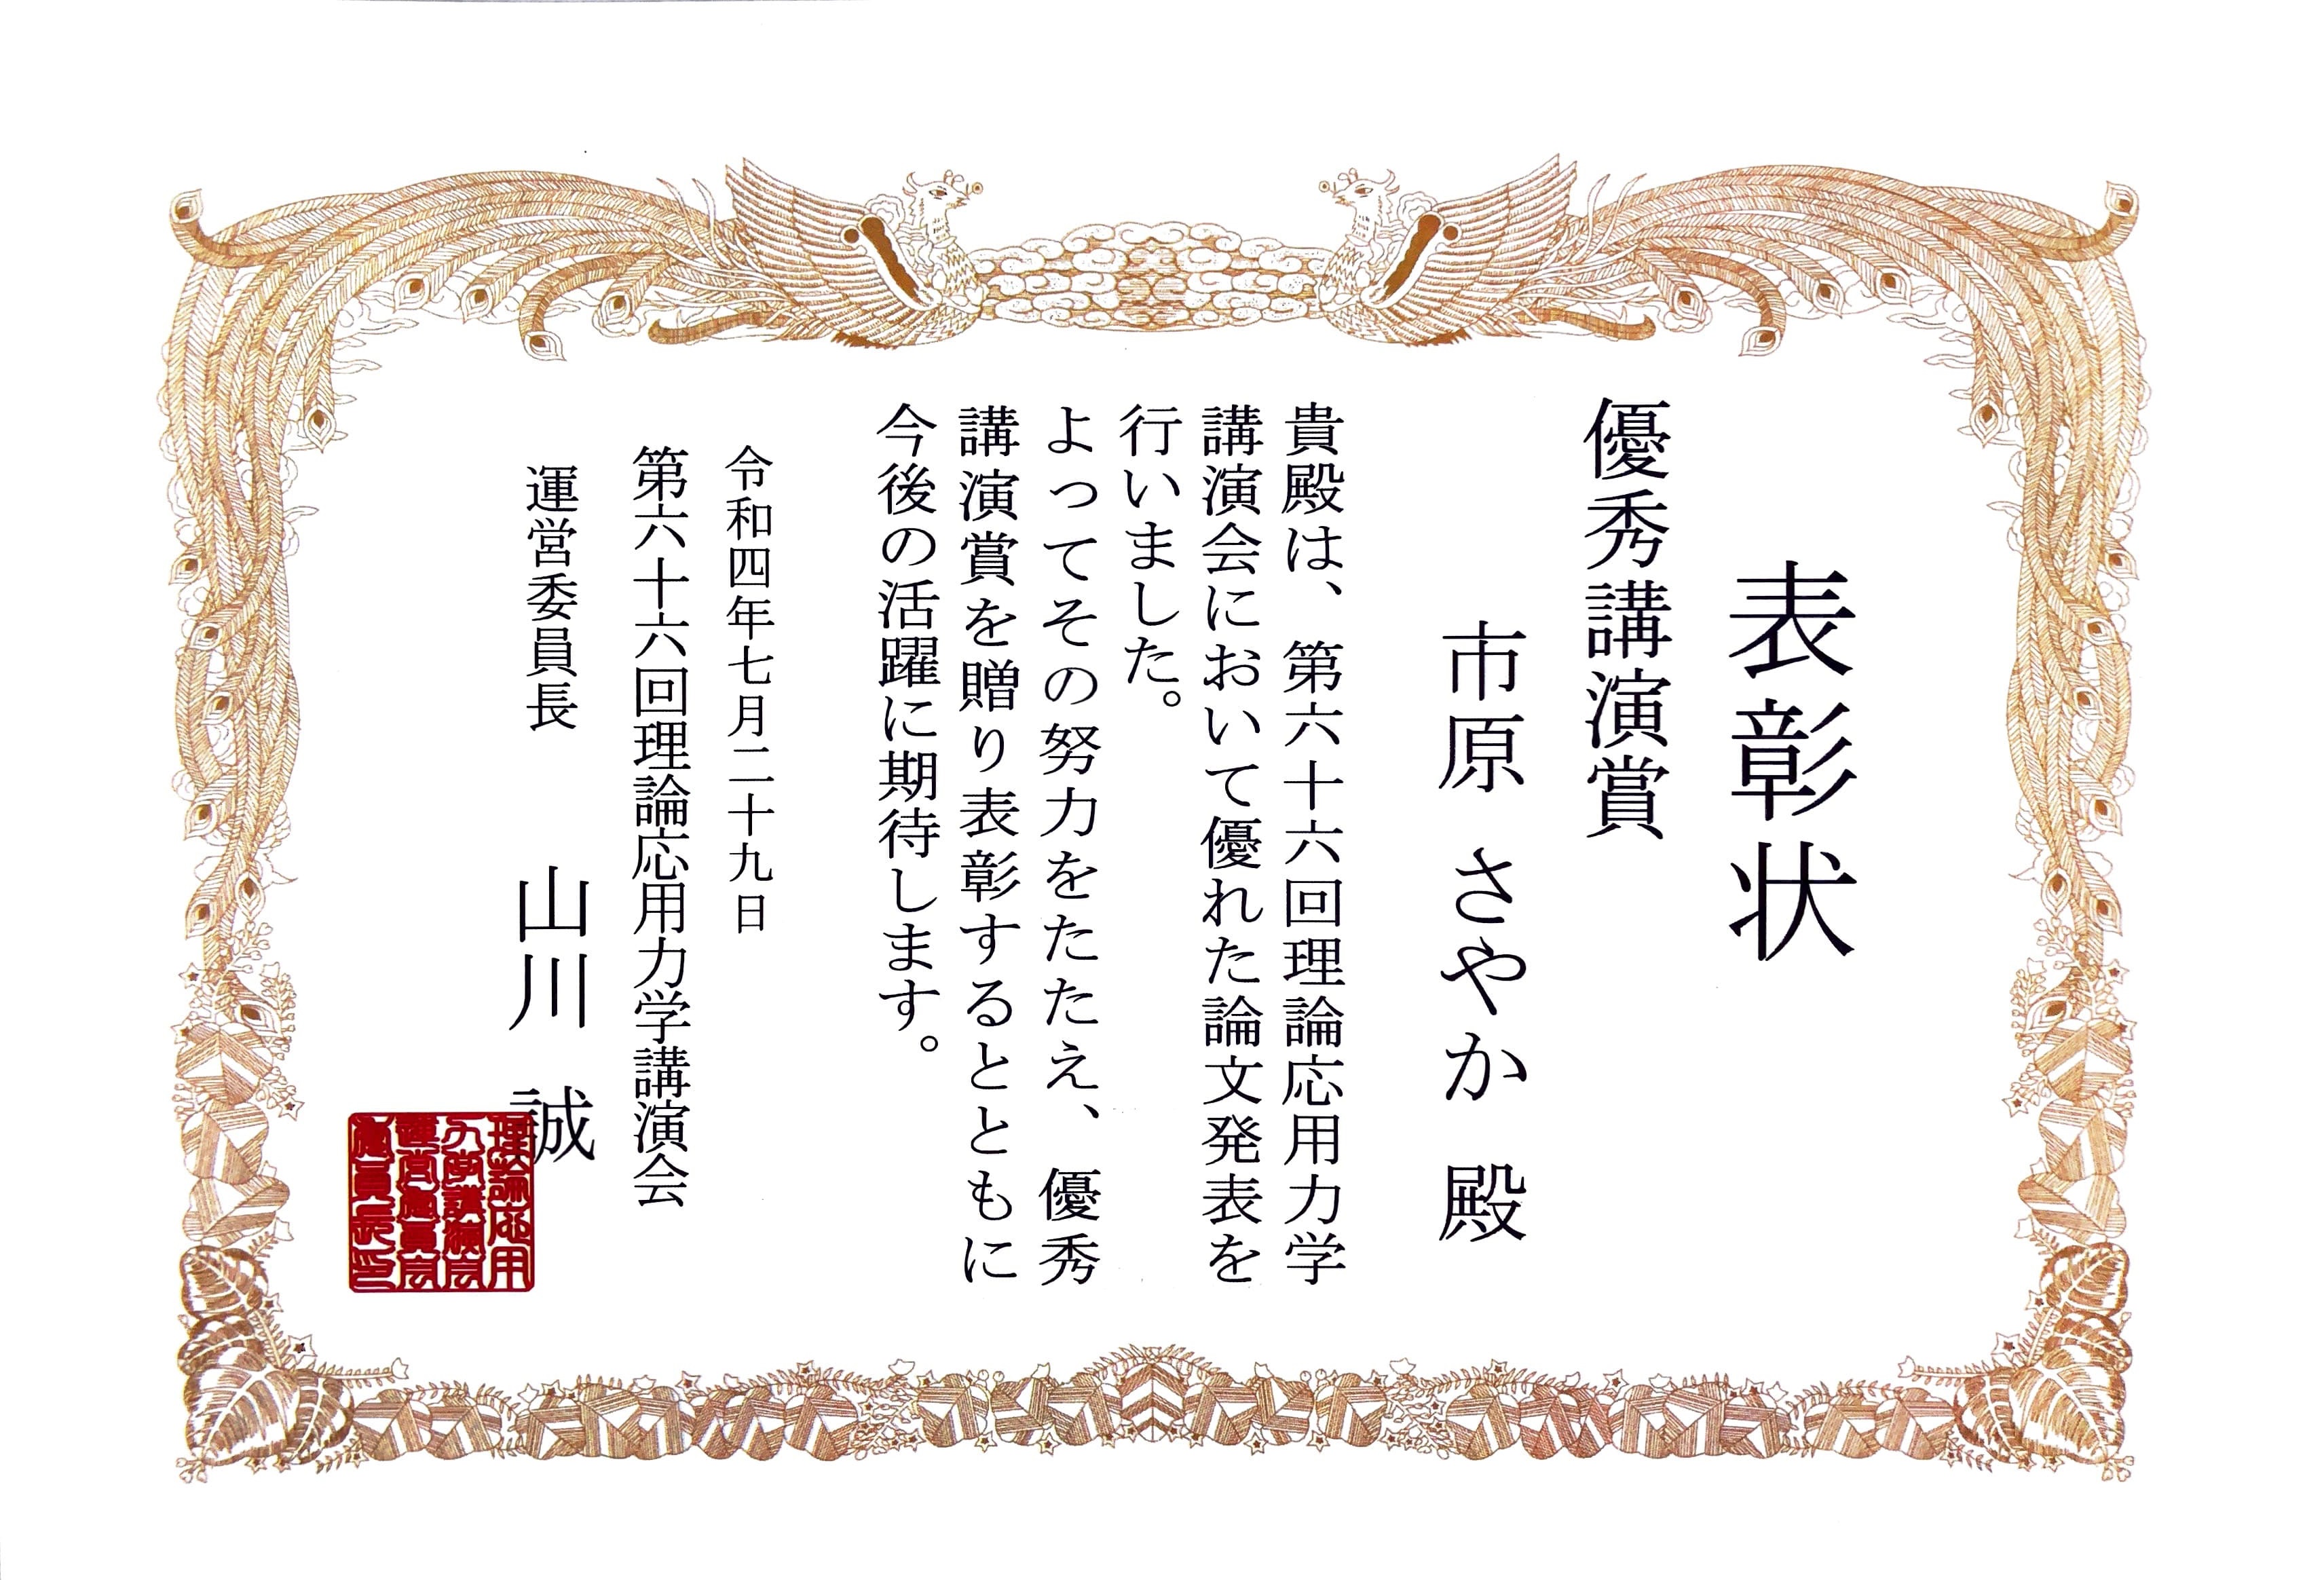 表彰状
優秀講演賞
市原 さやか 殿
貴殿は、第六十六回理論応用力学
講演会において優れた論文発表を
行いました。
よってその努力をたたえ、優秀
講演賞を贈り表彰するとともに
今後の活躍に期待します。
令和四年七月二十九日
第六十六回理論応用力学講演会
運営委員長 山川 誠
理論応用
力学講演会
運営委員会
委員長印